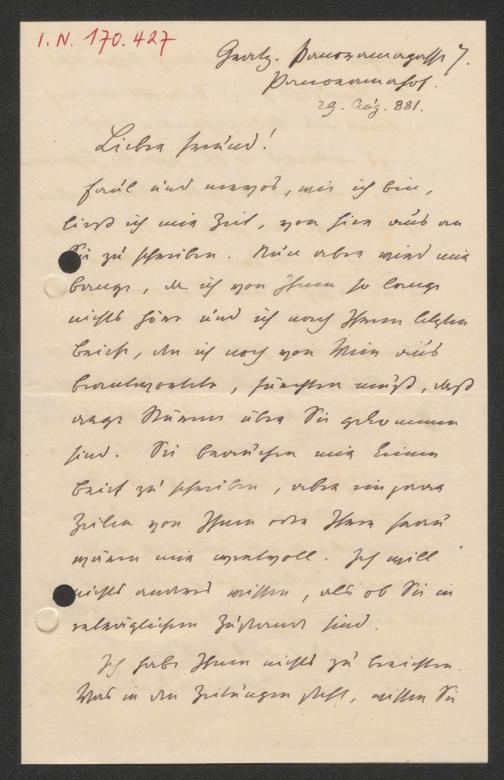 I. N. 170.427
Gratz. Panoramagasse 7.
Panoramahof.
29. Aug. 881.
Lieber Freund!
Faul und nervös, wie ich bin,
ließ ich mir Zeit, von hier aus an
Sie zu schreiben. Nun aber wird mir
bange, da ich von Ihnen so lange
nichts höre und ich nach Ihrem letzten
Briefe, den ich noch von Wien aus
beantwortete, fürchten muß, daß
arge Stürme über Sie gekommen
sind. Sie brauchen mir keinen
Brief zu schreiben, aber ein paar
Zeilen von Ihnen oder Ihrer Frau
wären mir wertvoll. Ich will
nichts anderes wissen, als ob Sie in
erträglichem Zustande sind.
Ich habe Ihnen nichts zu berichten.
Was in den Zeitungen steht, wissen Sie